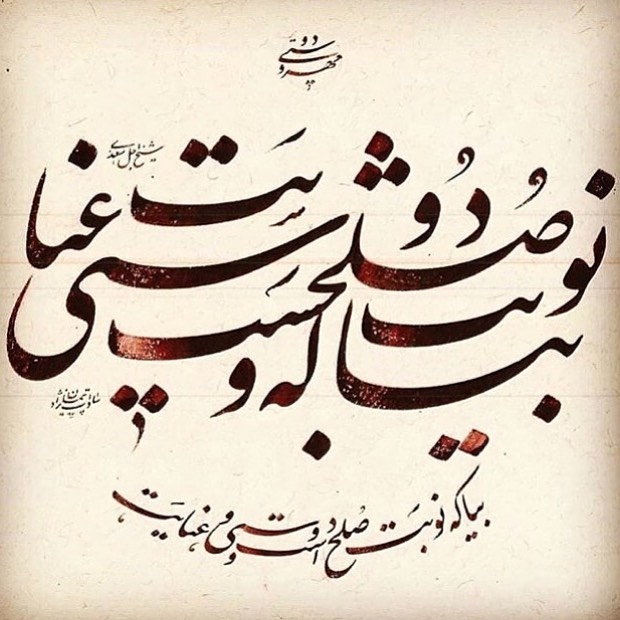 دوستی
شیخ اجل سعدی
بیا که نوبت صلح است و دوستی و عنایت
بیا که نوبت صلح است و دوستی و عنایت